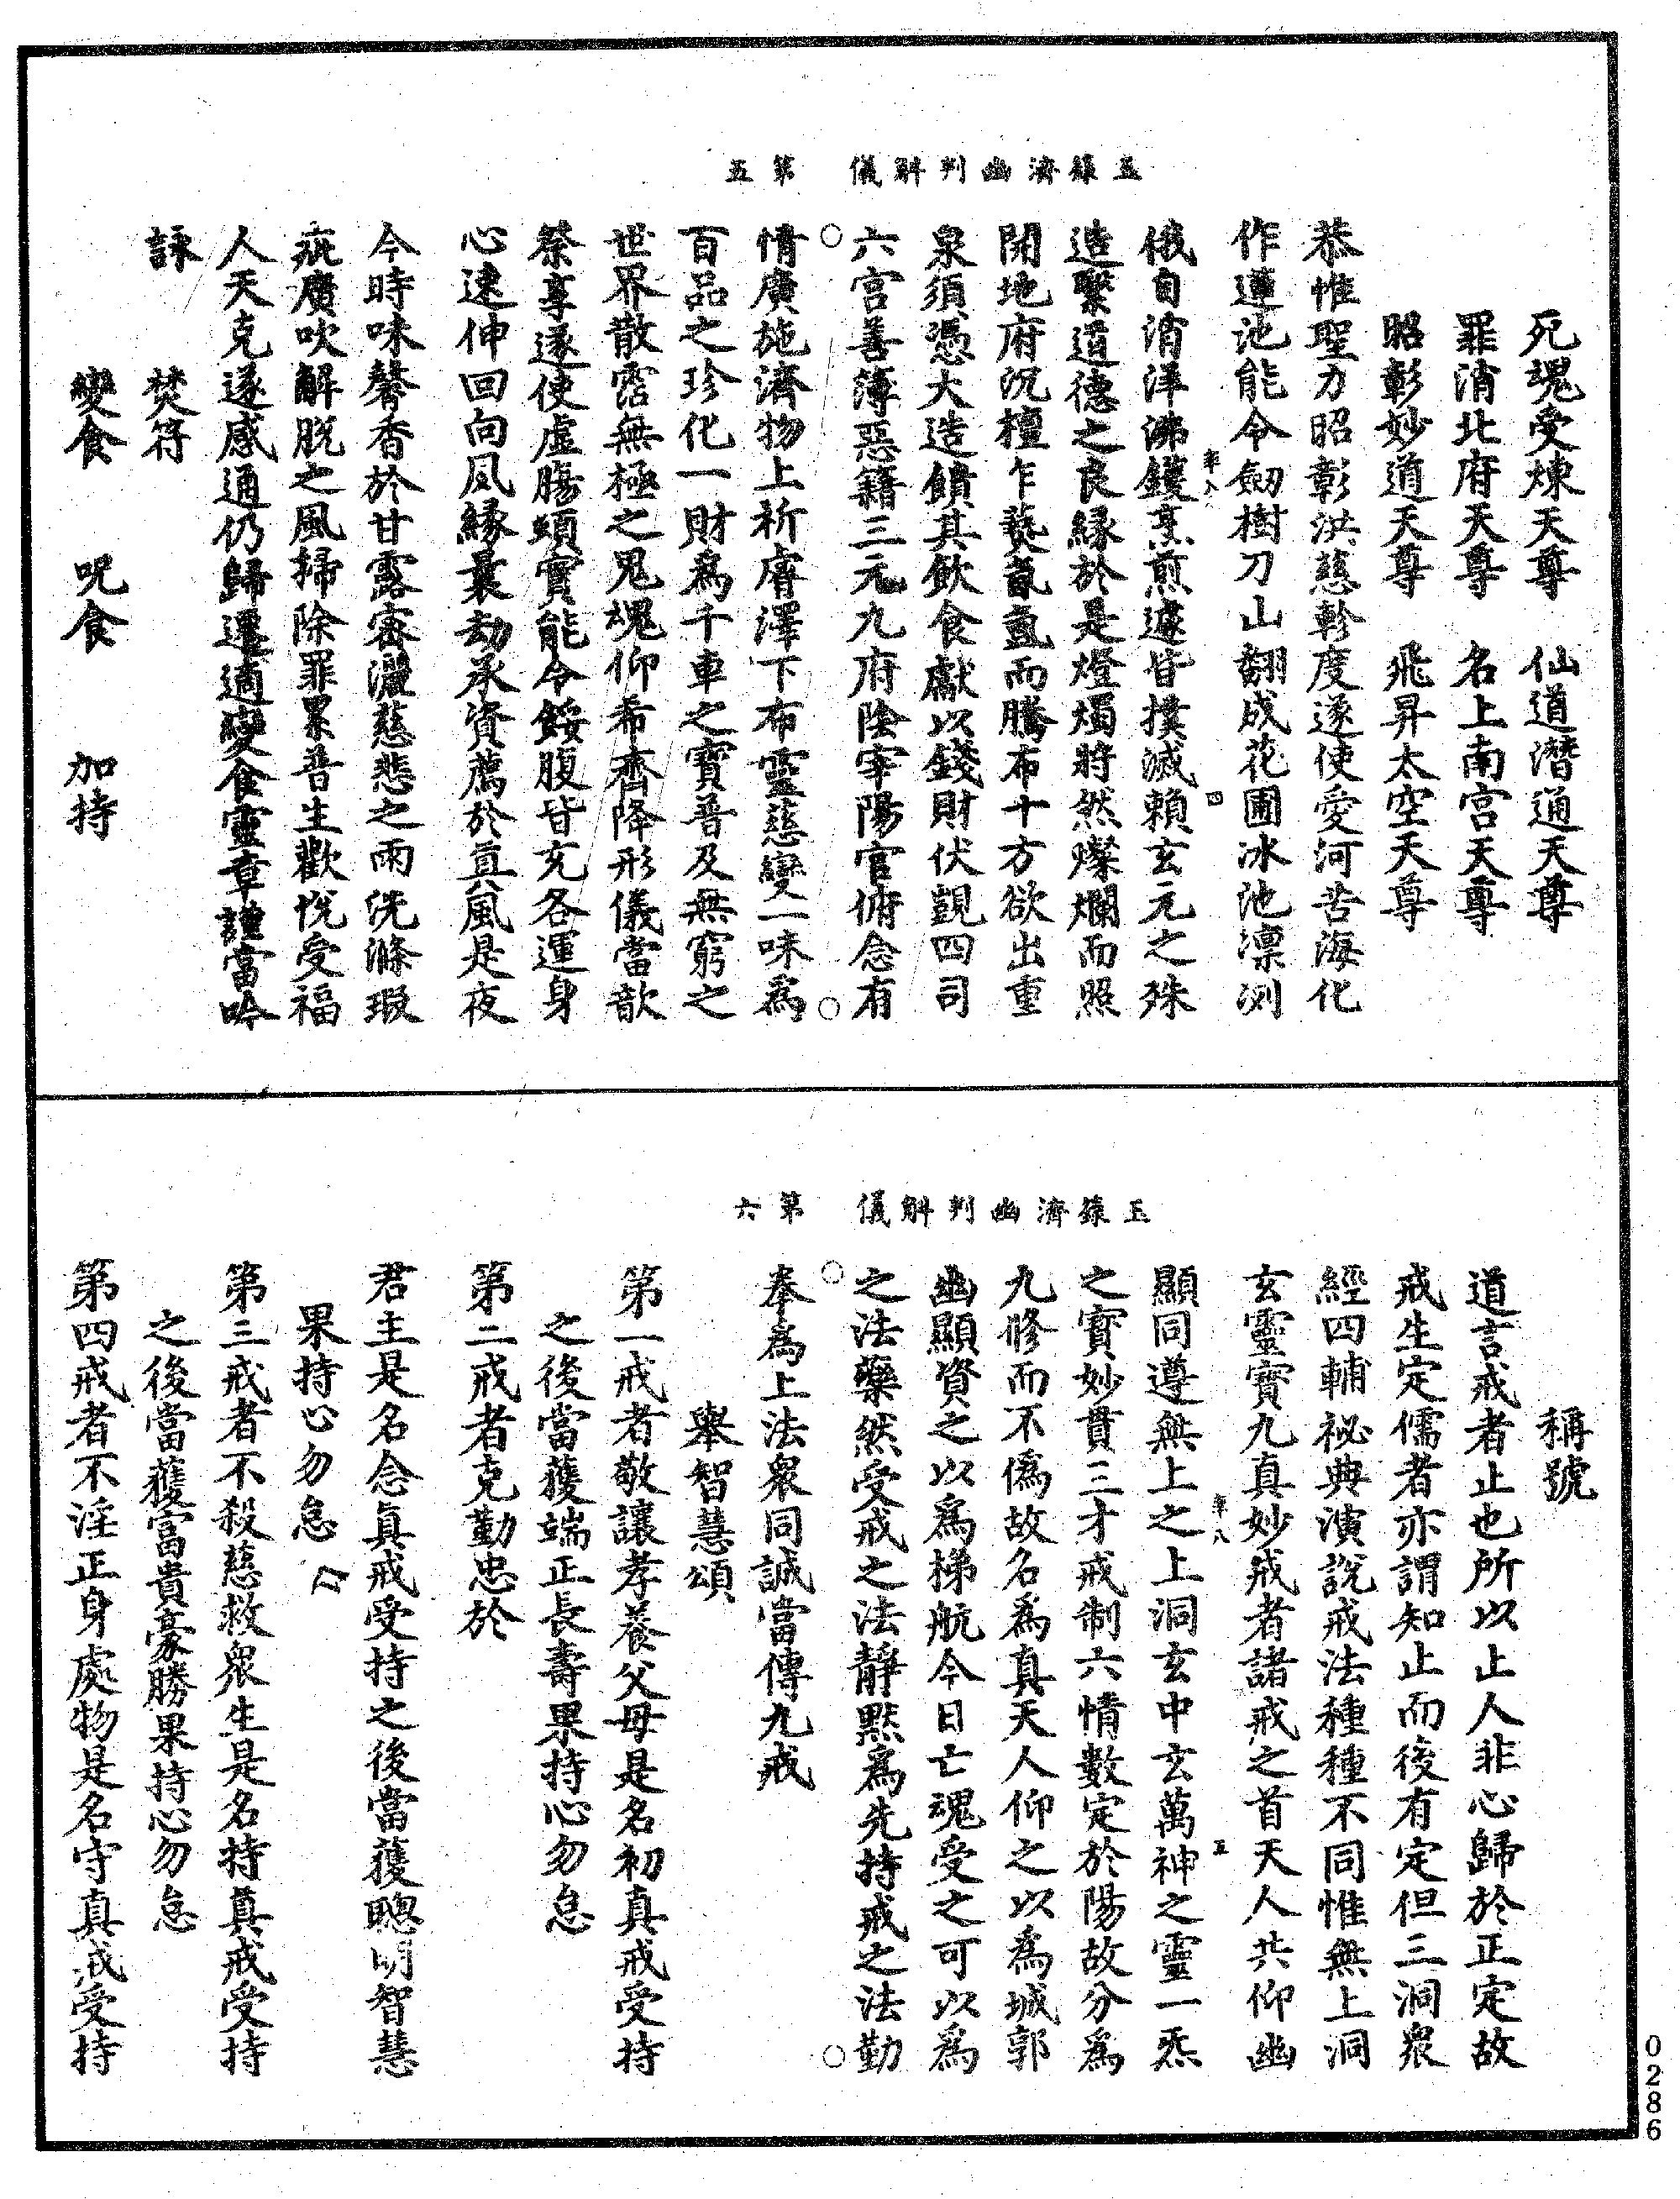 玉籙濟幽判斛儀　第五
死魂受煉天尊　仙道潛通天尊
罪消北府天尊　名上南宮天尊
昭彰妙道天尊　飛昇太空天尊
恭惟聖力昭彰洪慈軫度遂使愛河苦海化
作蓮池能令劒樹刀山翻成花圃冰池凛冽
俄自消洋沸鑊烹煎遽皆撲滅賴玄元之殊
造繄道德之良緣於是燈燭將然燦爛而照
開地府沉檀乍爇氤氳而騰布十方欲出重
泉須憑大造饋其飲食獻以錢財伏覬四司
六宮善簿惡籍三元九府陰宰陽官俯念有
情廣施濟物上祈膏澤下布靈慈變一味爲
百品之珍化一財爲千車之寶普及無窮之
世界散霑無極之鬼魂仰希齊降形儀當歆
祭享遂使虛腸頓實能令餒腹皆充各運身
心速伸回向夙緣曩劫承資薦於真風是夜
今時味馨香於甘露密灑慈悲之雨洗滌瑕
疵廣吹解脫之風掃除罪累普生歡悅受福
人天克遂感通仍歸還適變食靈章謹當吟
詠
焚符
變食　呪食　加持
年八
四
玉籙濟幽判斛儀　第六
稱號
道言戒者止也所以止人非心歸於正定故
戒生定儒者亦謂知止而後有定但三洞衆
經四輔祕典演說戒法種種不同惟無上洞
玄靈寶九真妙戒者諸戒之首天人共仰幽
顯同遵無上之上洞玄中玄萬神之靈一炁
之寶妙貫三才戒制六情數定於陽故分爲
九修而不僞故名爲真天人仰之以爲城郭
幽顯資之以爲梯航今日亡魂受之可以爲
之法藥然受戒之法靜默爲先持戒之法勤
奉爲上法衆同誠當傳九戒
舉智慧頌
第一戒者敬讓孝養父母是名初真戒受持
之後當獲端正長壽果持心勿怠
第二戒者克勤忠於
君主是名念真戒受持之後當獲聰明智慧
果持心勿怠
第三戒者不殺慈救衆生是名持真戒受持
之後當獲富貴豪勝果持心勿怠
第四戒者不淫正身處物是名守真戒受持
年八
五
0286